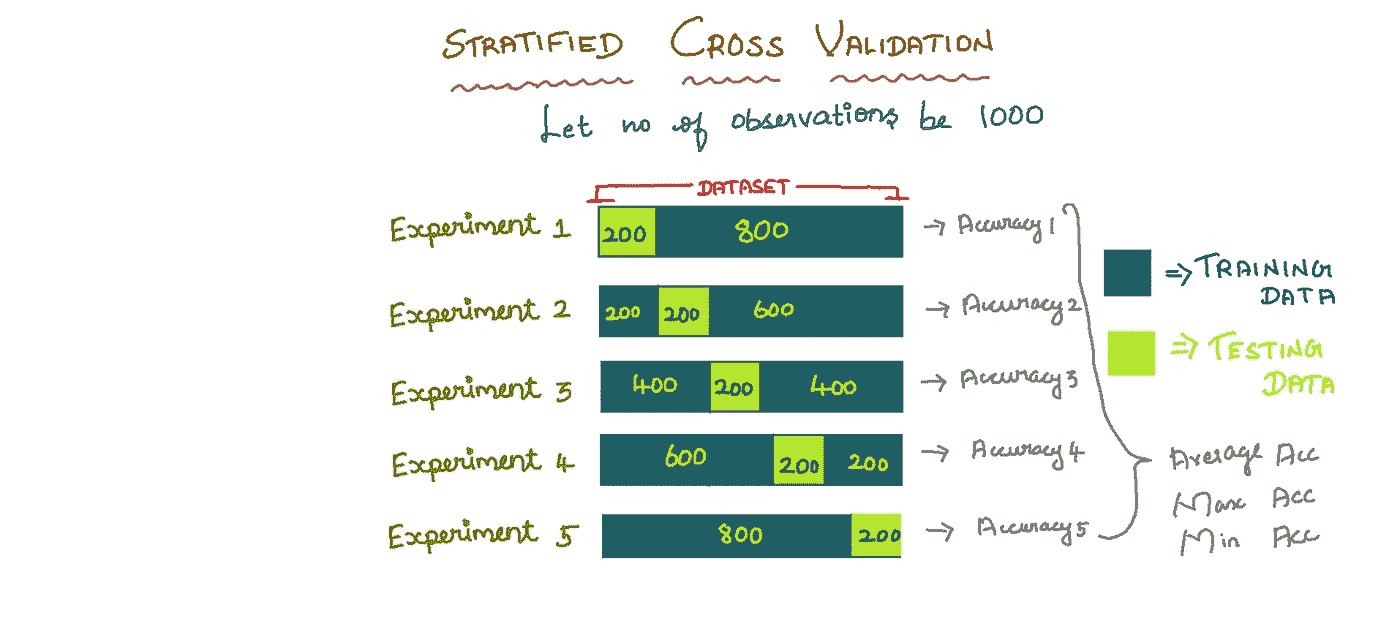 STRATIFIED CROSS VALIDATION
Let no of observations be 1000
DATASET
Experiment 1 200 800 → Accuracy 1
Experiment 2 200 200 600 → Accuracy 2
Experiment 3 400 200 400 → Accuracy 3
Experiment 4 600 200 200 → Accuracy 4
Experiment 5 800 200 → Accuracy 5
⇒ TRAINING
DATA
⇒ TESTING
DATA
Average Acc
Max Acc
Min Acc